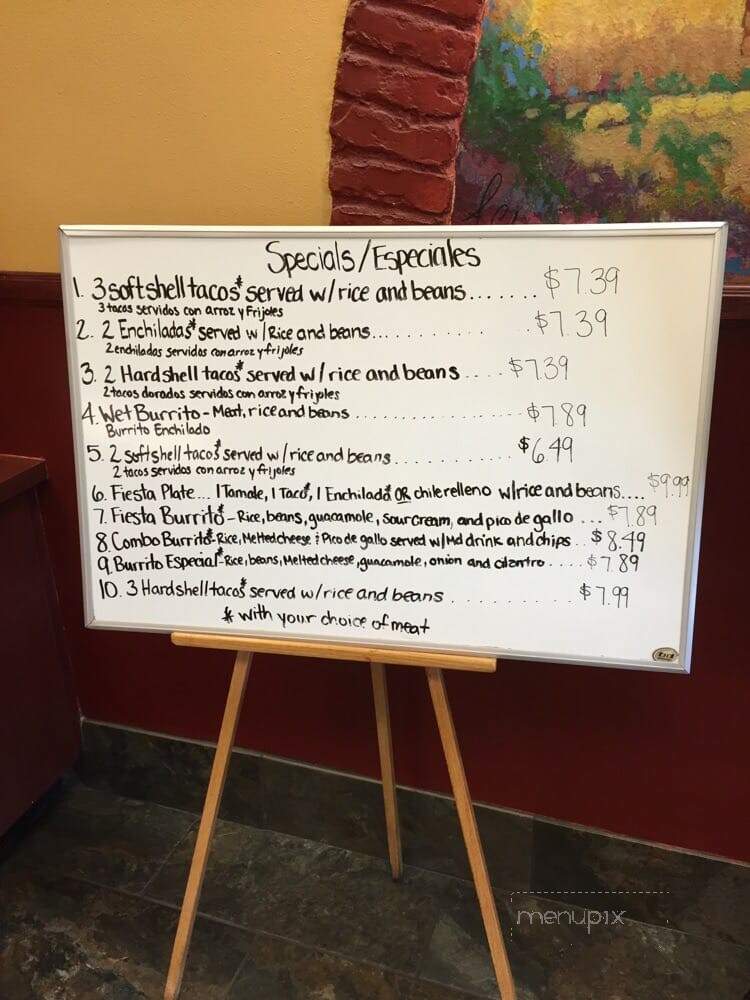 Specials/Especiales
1. 3 soft shell tacos* served w/rice and beans....... $7.39
3 tacos servidos con arroz y Frijoles
2. 2 Enchiladas* served w/Rice and beans............ $7.39
2 enchiladas servidas con arroz y frijoles
3. 2 Hard shell tacos* served w/rice and beans.... $7.39
2 tacos dorados servidos con arroz y frijoles
4. Wet Burrito - Meat, rice and beans .................. $7.89
Burrito Enchilado
5. 2 soft shell tacos* served w/rice and beans............ $6.49
2 tacos servidos con arroz y frijoles
6. Fiesta Plate... 1 Tamale, 1 Taco*, 1 Enchilada* OR chile relleno w/rice and beans.... $9.99
7. Fiesta Burrito* - Rice, beans, guacamole, sour cream, and pico de gallo ... $7.89
8. Combo Burrito* - Rice, Melted cheese & Pico de gallo served w/Md drink and chips .. $8.49
9. Burrito Especial* - Rice, beans, Melted cheese, guacamole, onion and cilantro ..... $7.89
10. 3 Hard shell tacos* served w/rice and beans .......... $7.99
* with your choice of meat
menupix